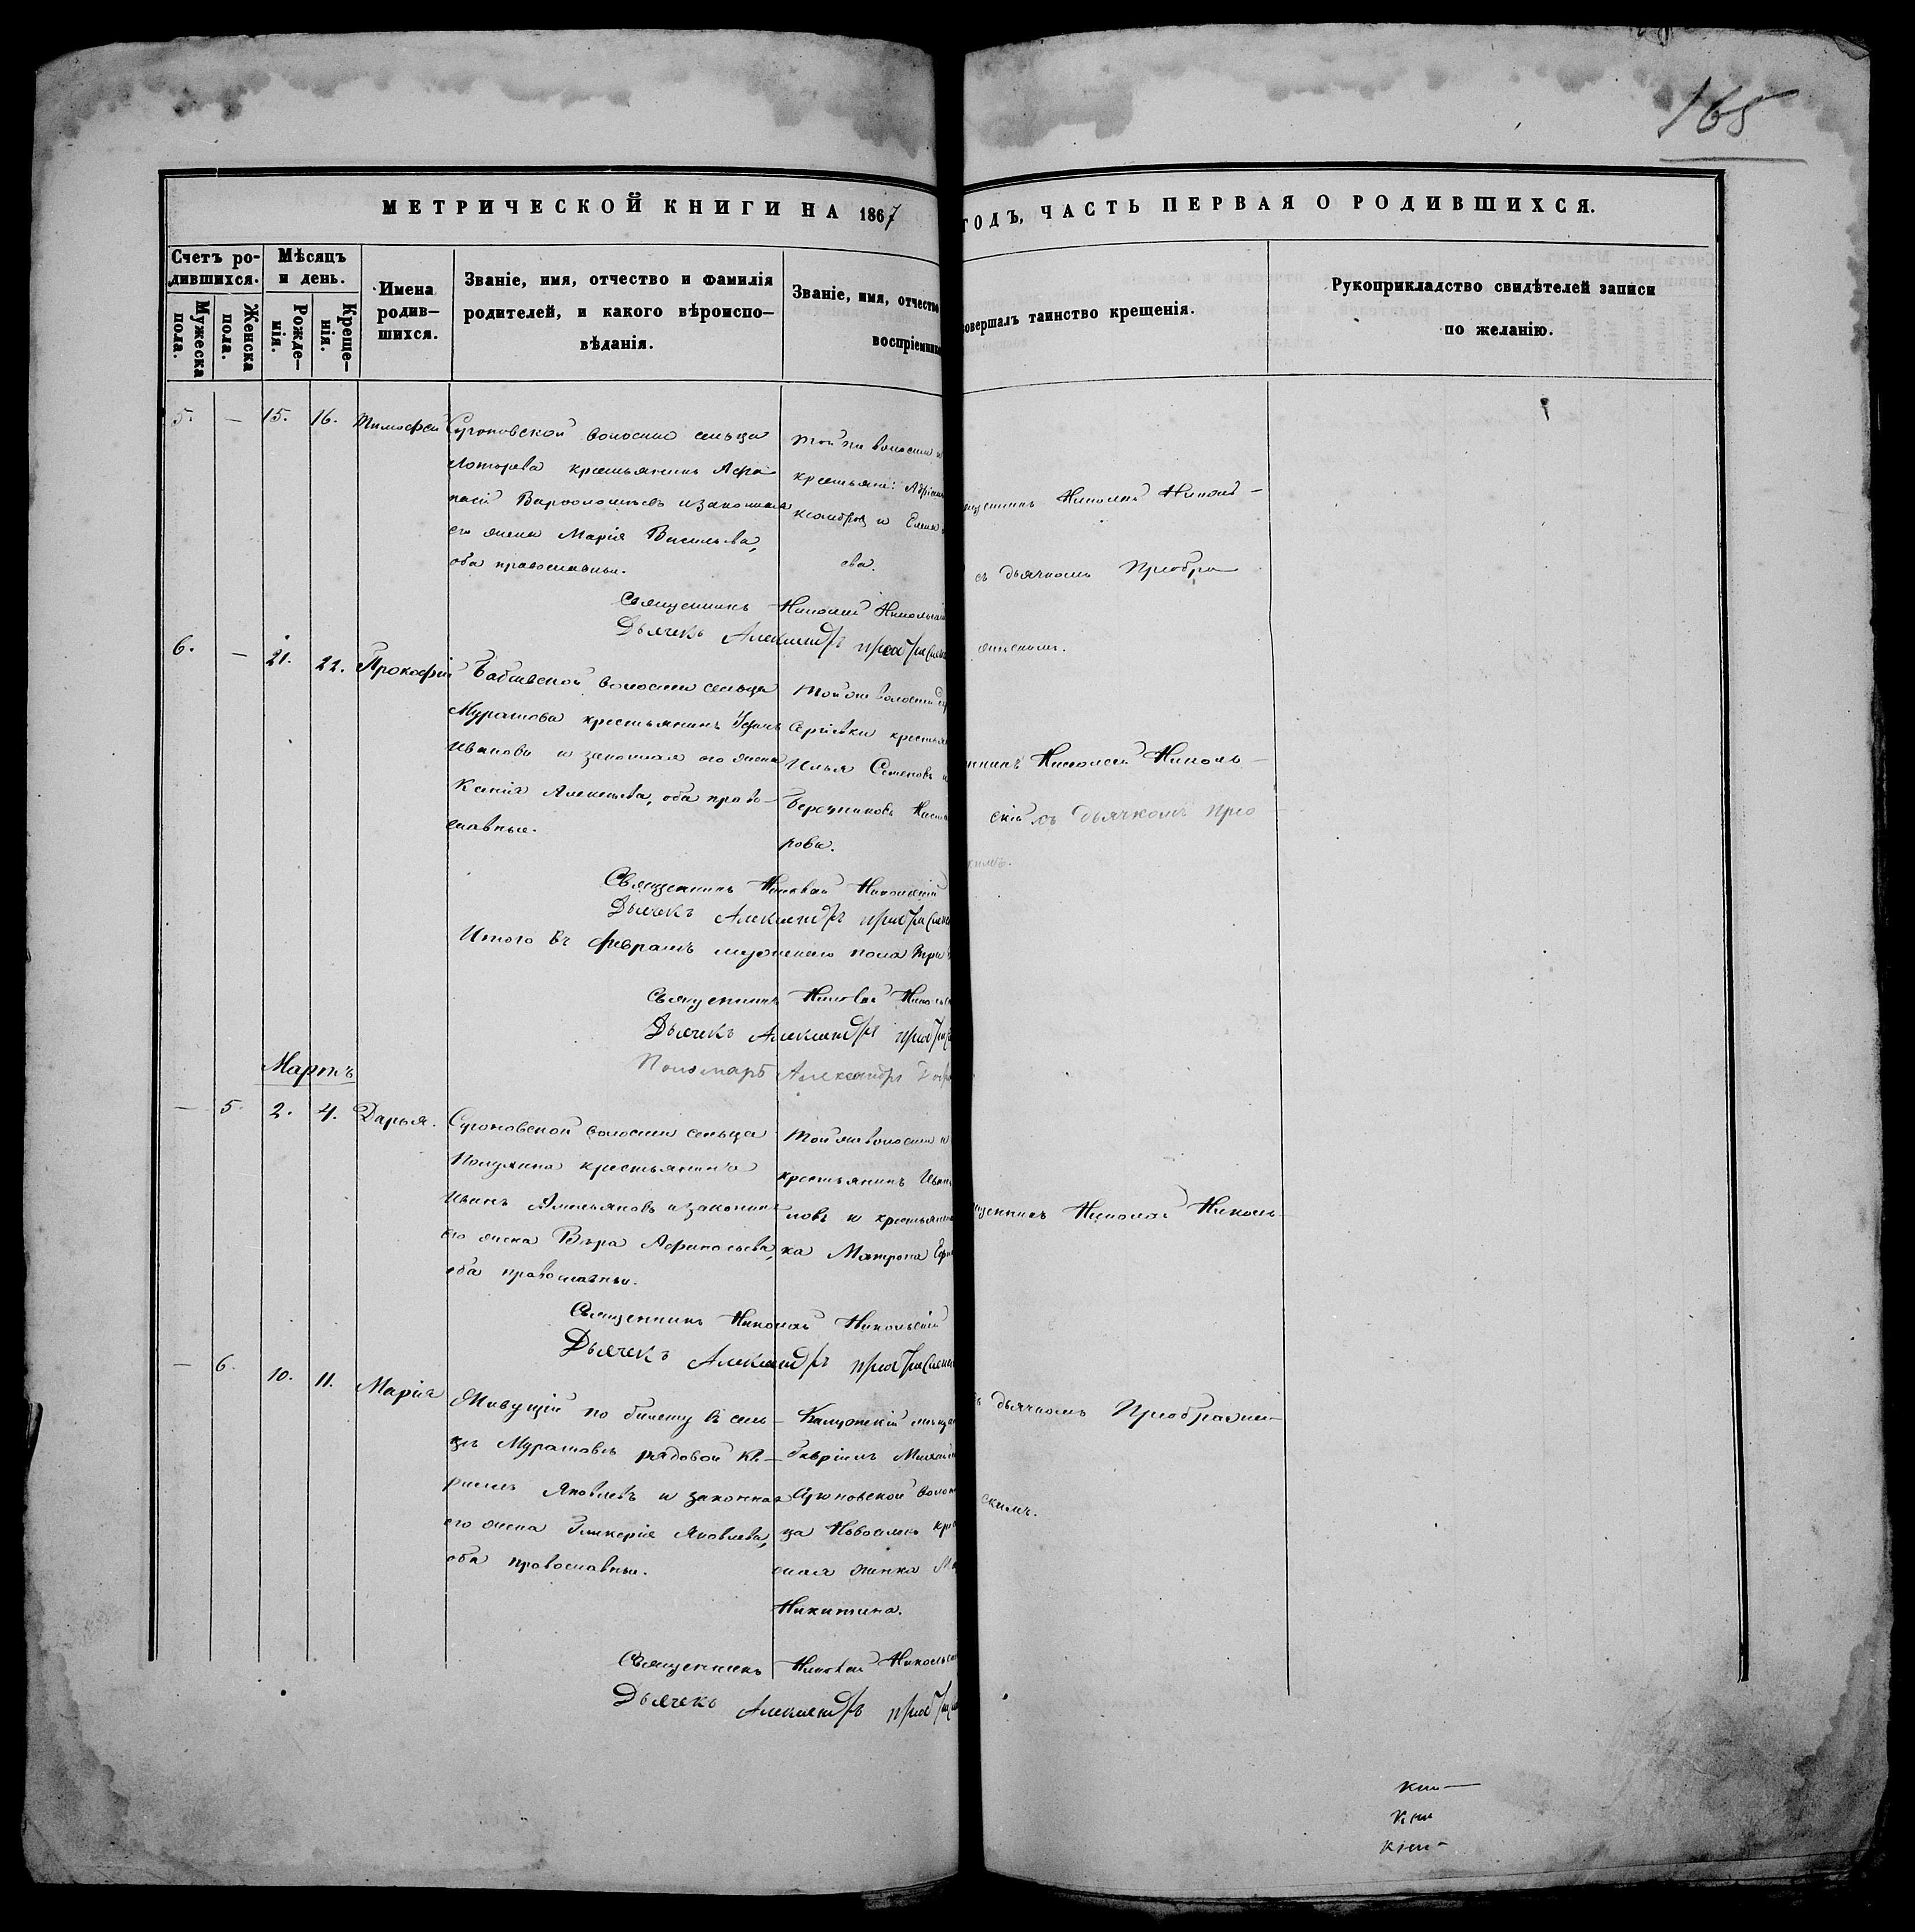 165
МЕТРИЧЕСКОЙ КНИГИ НА 1867 ГОДЪ, ЧАСТЬ ПЕРВАЯ О РОДИВШИХСЯ.
Счетъ ро-
дившихся.
Мужеска
пола.
Женска
пола.
Мѣсяцъ
и день.
Рожде-
нія.
Креще-
нія.
Имена
родив-
шихся.
Званіе, имя, отчество и фамилія
родителей, и какого вѣроиспо-
вѣданія.
Званіе, имя, отчество
воспріемник
совершалъ таинство крещенія.
Рукоприкладство свидѣтелей записи
по желанію.
5. — 15. 16. Тимофей
волости сельца
крестьянинъ Афа-
насій Варфоломеевъ и законная
его жена Марія Васильева,
оба православные.
Той же волости
крестьяне:
и Елена
ева.
Николай Николь-
съ дьячкомъ Преобра-
женскимъ.
Священникъ Николай Никольскій
Дьячекъ Александръ Преображенс
6. — 21. 22. Прокофій
волости сельца
Муратова крестьянинъ
Ивановъ и законная его жена
Ксенія Алексѣева, оба право-
славные.
Той же волости
Сергіевки крестьян
Илья Семеновъ и
рова.
нникъ Николай Николь-
скій съ дьячкомъ Прео
кимъ.
Священникъ Николай Никольскій
Дьячекъ Александръ Преображенс
Итого въ Февралѣ мужескаго пола три
Священникъ Николай Никольс
Дьячекъ Александръ Преобра
Пономарь Александръ
Мартъ
— 5. 2. 4. Дарья.
волости сельца
крестьянинъ
Иванъ Емельяновъ и законная
его жена Вѣра Афанасьева,
оба православные.
Той же волости и
крестьянинъ Иван
ловъ и крестьянс
ка Матрона Ефи
щенникъ Николай Николь-
Священникъ Николай Никольскій
Дьячекъ Александръ Преображенс
— 6. 10. 11. Марія
Живущій по билету въ сель-
цѣ Муратовѣ рядовой Ки-
рилъ Яковлевъ и законная
его жена Гликерія Яковлева,
оба православные.
Калужскій мѣщан
Гавріилъ Михайл
волост
ца кре
ская женка
Никитина.
съ дьячкомъ Преображен-
скимъ.
Священникъ Николай Никольс
Дьячекъ Александръ Преображ